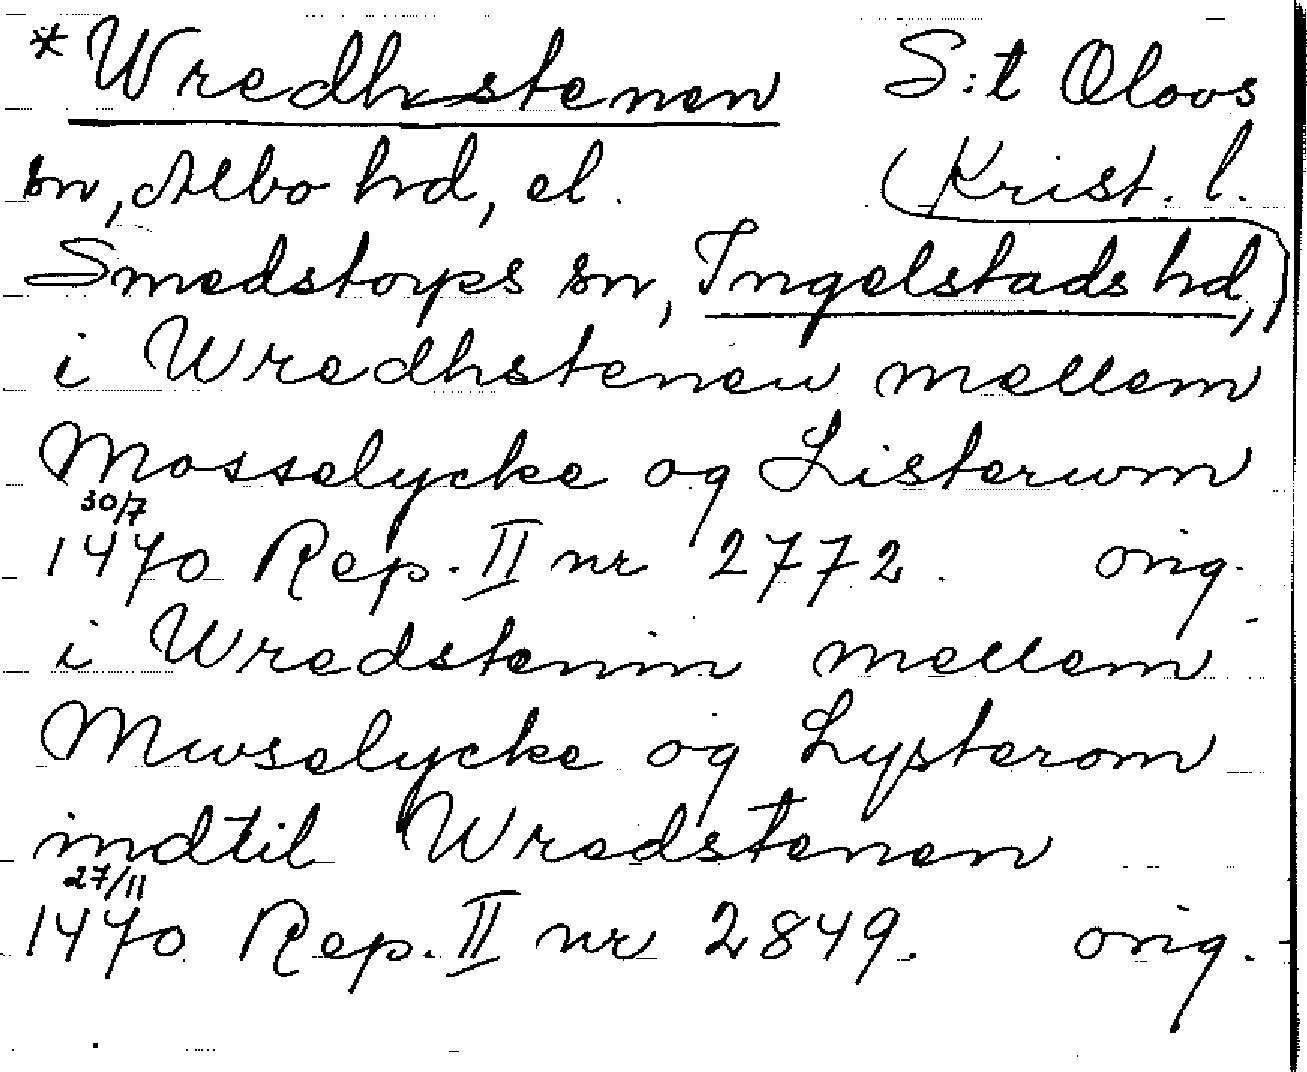 *Wredhstenen S:t Olovs
sn, Albo hd, el. (Krist. l.
Smedstorps sn, Ingelstads hd,)
i Wredhstenen mellem
Mosselycke og Listerum
30/7
1470 Rep. II nr 2772. orig.
i Wredstenin mellem
Muselycke og Lysterom
indtil Wredstenen
27/11
1470 Rep. II nr 2849. orig.